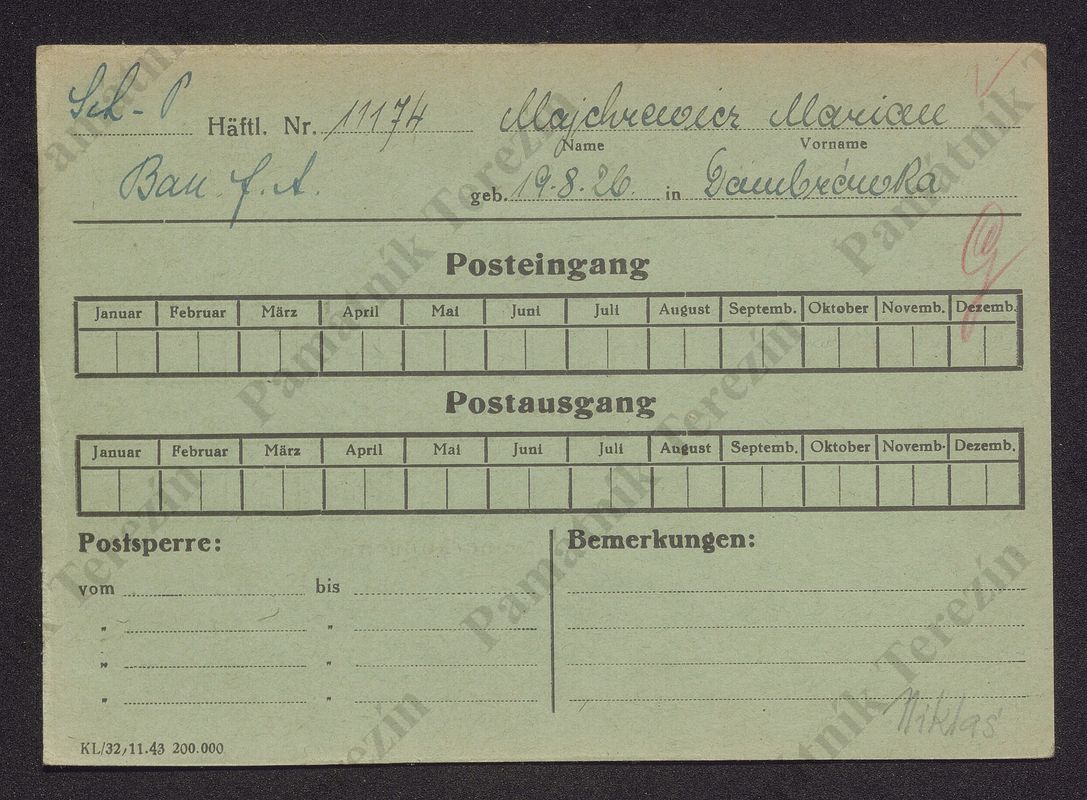 Sch-P Häftl. Nr. 11174 Majchrewicz Marian
Name Vorname
Bau f. A. geb. 19.8.26. in Dambrówka
Posteingang
Januar Februar März April Mai Juni Juli August Septemb. Oktober Novemb. Dezemb.
Postausgang
Januar Februar März April Mai Juni Juli August Septemb. Oktober Novemb- Dezemb.
Postsperre: Bemerkungen:
vom bis
" "
" "
" "
Niklaś
KL/32/11.43 200.000
Památník Terezín